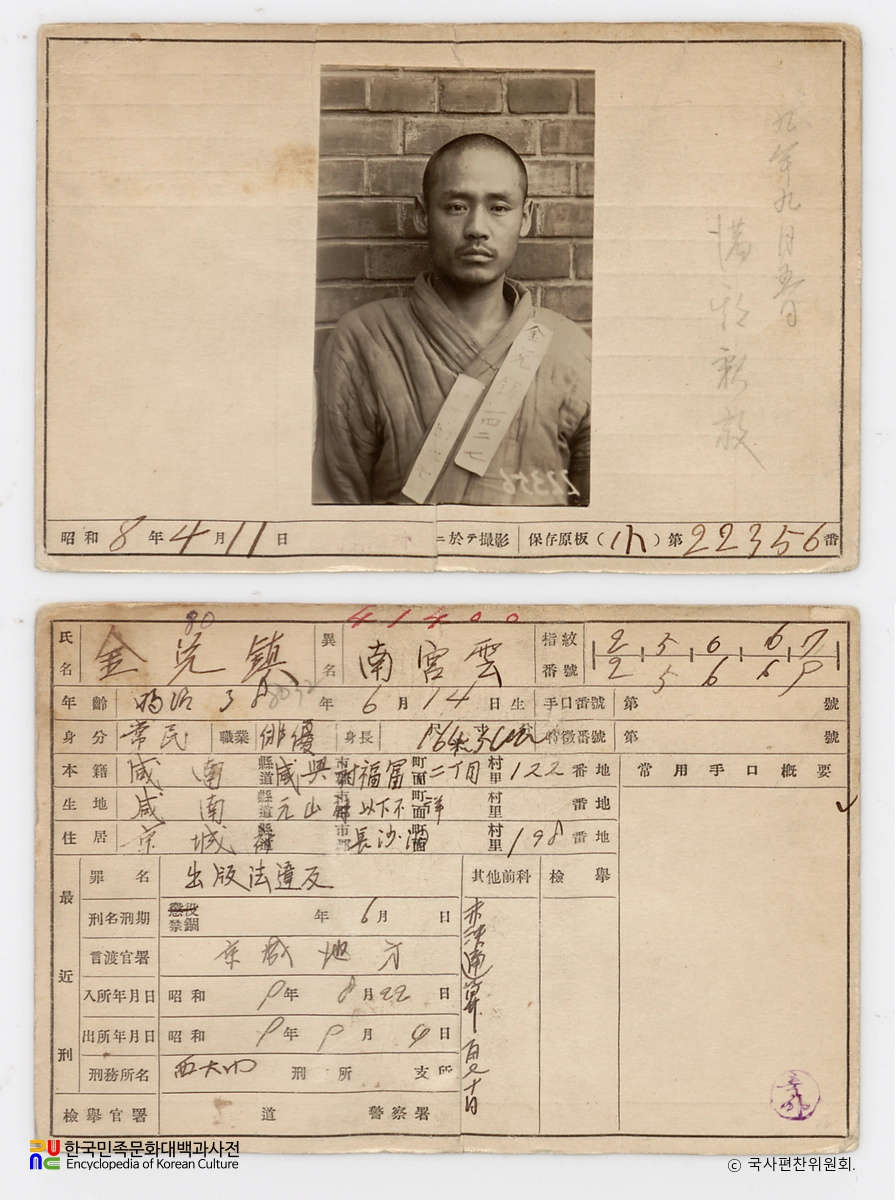 九年九月五日
満期釈放
金兌鎮
一四二七
22356
昭和 8 年 4 月 11 日
ニ於テ撮影 保存原板(小)第 22356 番
41400
80
氏名 金兌鎮 異名 南宮雲 指紋番號 2 5 6 6 7
2 5 6 6 9
年齡 明治 38 年 6 月 14 日生 手口番號 第 號
身分 常民 職業 俳優 身長 特徵番號 第 號
本籍 咸南 縣道 咸興 市郡 福富 町面 二丁目 村里 122 番地 常用手口概要
生地 咸南 縣道 元山 以下不詳 町面 村里 番地
住居 京城 長沙洞 村里 198 番地
最近刑
罪名 出版法違反 其他前科 檢擧
刑名刑期 懲役 禁錮 年 6 月 日
未決通算
百七十日
言渡官署 京城地方
入所年月日 昭和 9 年 8 月 22 日
出所年月日 昭和 9 年 9 月 4 日
刑務所名 西大門 刑所 支所
檢擧官署 道 警察署
한국민족문화대백과사전
Encyclopedia of Korean Culture
© 국사편찬위원회.